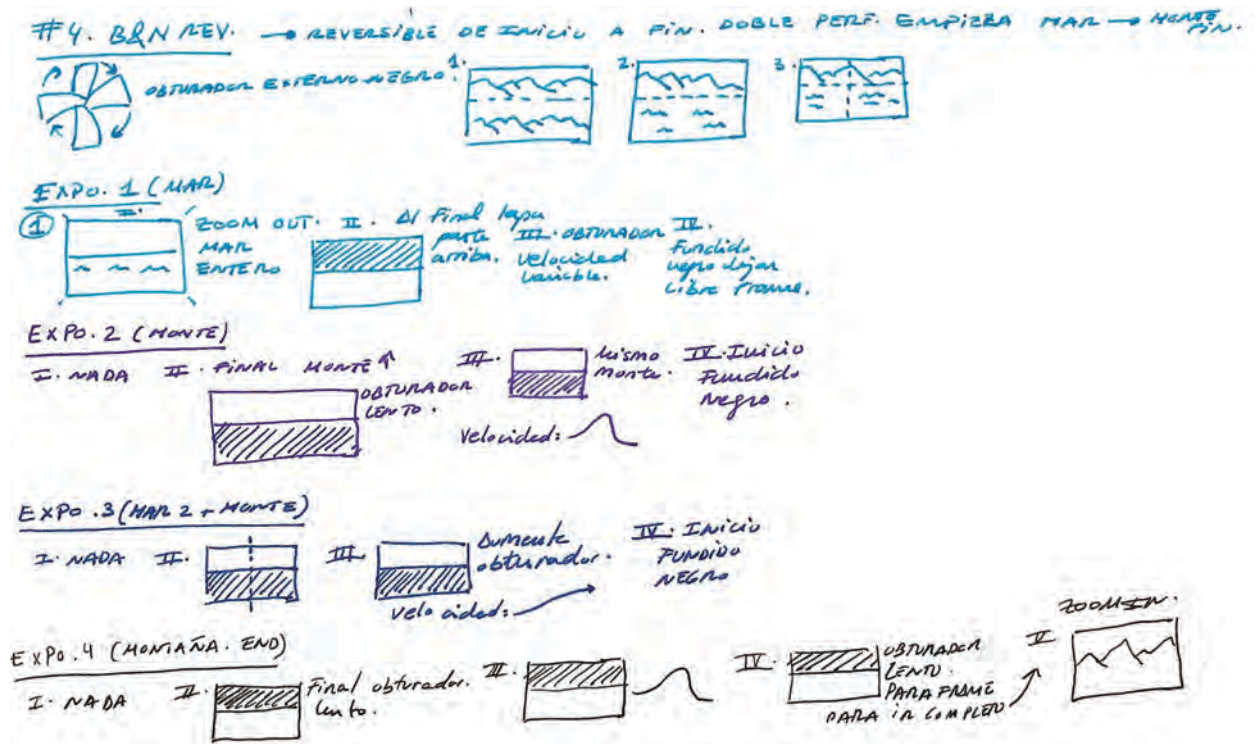 #4. B&N REV. → REVERSIBLE DE INICIO A FIN. DOBLE PERF. EMPIEZA MAR → MONTE FIN.
OBTURADOR EXTERNO NEGRO.
1.
2.
3.
EXPO. 1 (MAR)
1
I.
ZOOM OUT.
MAR
ENTERO
II. Al Final tapa
parte
arriba.
III. OBTURADOR
velocidad
variable.
IV.
Fundido
negro dejar
Libre Frame.
EXPO. 2 (MONTE)
I. NADA
II. FINAL MONTE
OBTURADOR
LENTO.
III.
Mismo
monte.
Velocidad:
IV. Inicio
Fundido
Negro.
EXPO. 3 (MAR 2 + MONTE)
I. NADA
II.
III.
Aumenta
obturador.
Velocidad:
IV. INICIO
FUNDIDO
NEGRO
EXPO. 4 (MONTAÑA. END)
I. NADA
II.
Final obturador.
lento.
II.
IV.
OBTURADOR
LENTO.
PARA FRAME
PARA IR COMPLETO
V
ZOOM IN.